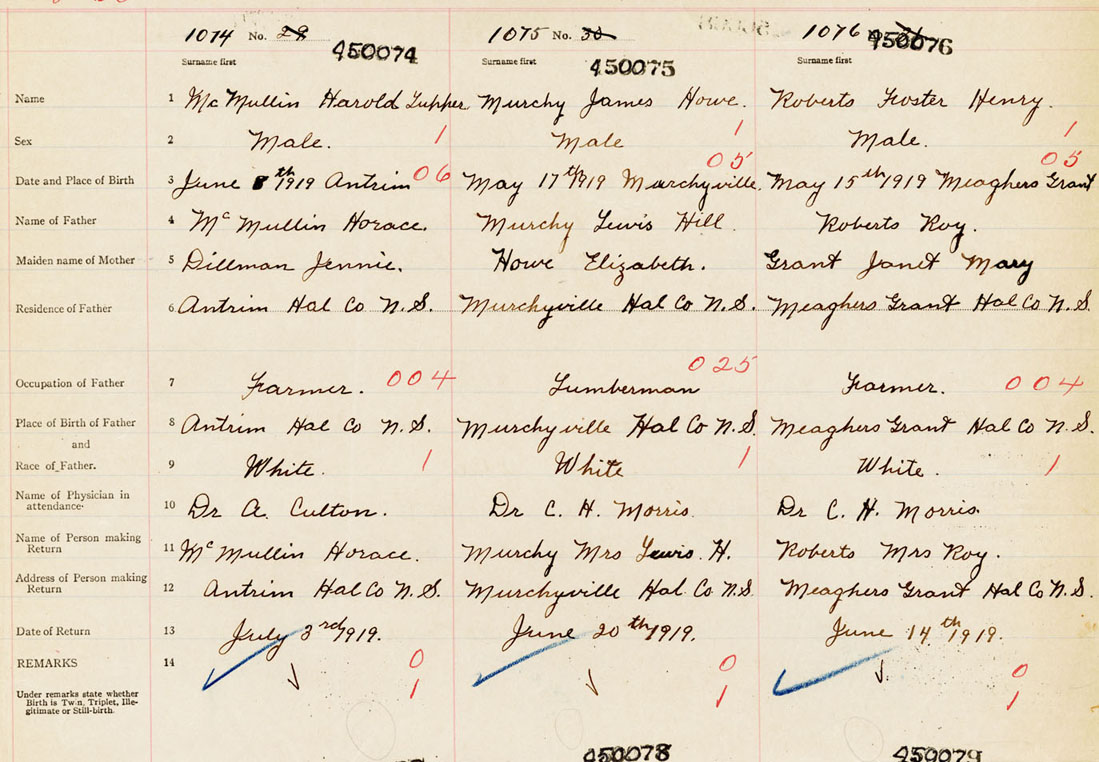 1074 No. 29 450074 1075 No. 30 450075 1076 450076
Surname first Surname first Surname first
Name 1 McMullin Harold Tupper Murchy James Howe. Roberts Foster Henry.
Sex 2 Male. 1 Male 1 Male. 1
Date and Place of Birth 3 June 8th 1919 Antrim 06 May 17th 1919 Murchyville. 05 May 15th 1919 Meaghers Grant 05
Name of Father 4 McMullin Horace. Murchy Lewis Hill. Roberts Roy.
Maiden name of Mother 5 Dillman Jennie. Howe Elizabeth. Grant Janet Mary
Residence of Father 6 Antrim Hal Co N.S. Murchyville Hal Co N.S. Meaghers Grant Hal Co N.S.
Occupation of Father 7 Farmer. 004 Lumberman 025 Farmer. 004
Place of Birth of Father 8 Antrim Hal Co N.S. Murchyville Hal Co N.S. Meaghers Grant Hal Co N.S.
and
Race of Father. 9 White. 1 White 1 White. 1
Name of Physician in
attendance. 10 Dr A. Culton. Dr C. H. Morris. Dr C. H. Morris.
Name of Person making
Return 11 McMullin Horace. Murchy Mrs Lewis H. Roberts Mrs Roy.
Address of Person making
Return 12 Antrim Hal Co N.S. Murchyville Hal Co N.S. Meaghers Grant Hal Co N.S.
Date of Return 13 July 3rd 1919. June 20th 1919. June 14th 1919.
REMARKS 14 0 0 0
Under remarks state whether
Birth is Twin, Triplet, Ille-
gitimate or Still-birth. 1 1 1
450078 450079